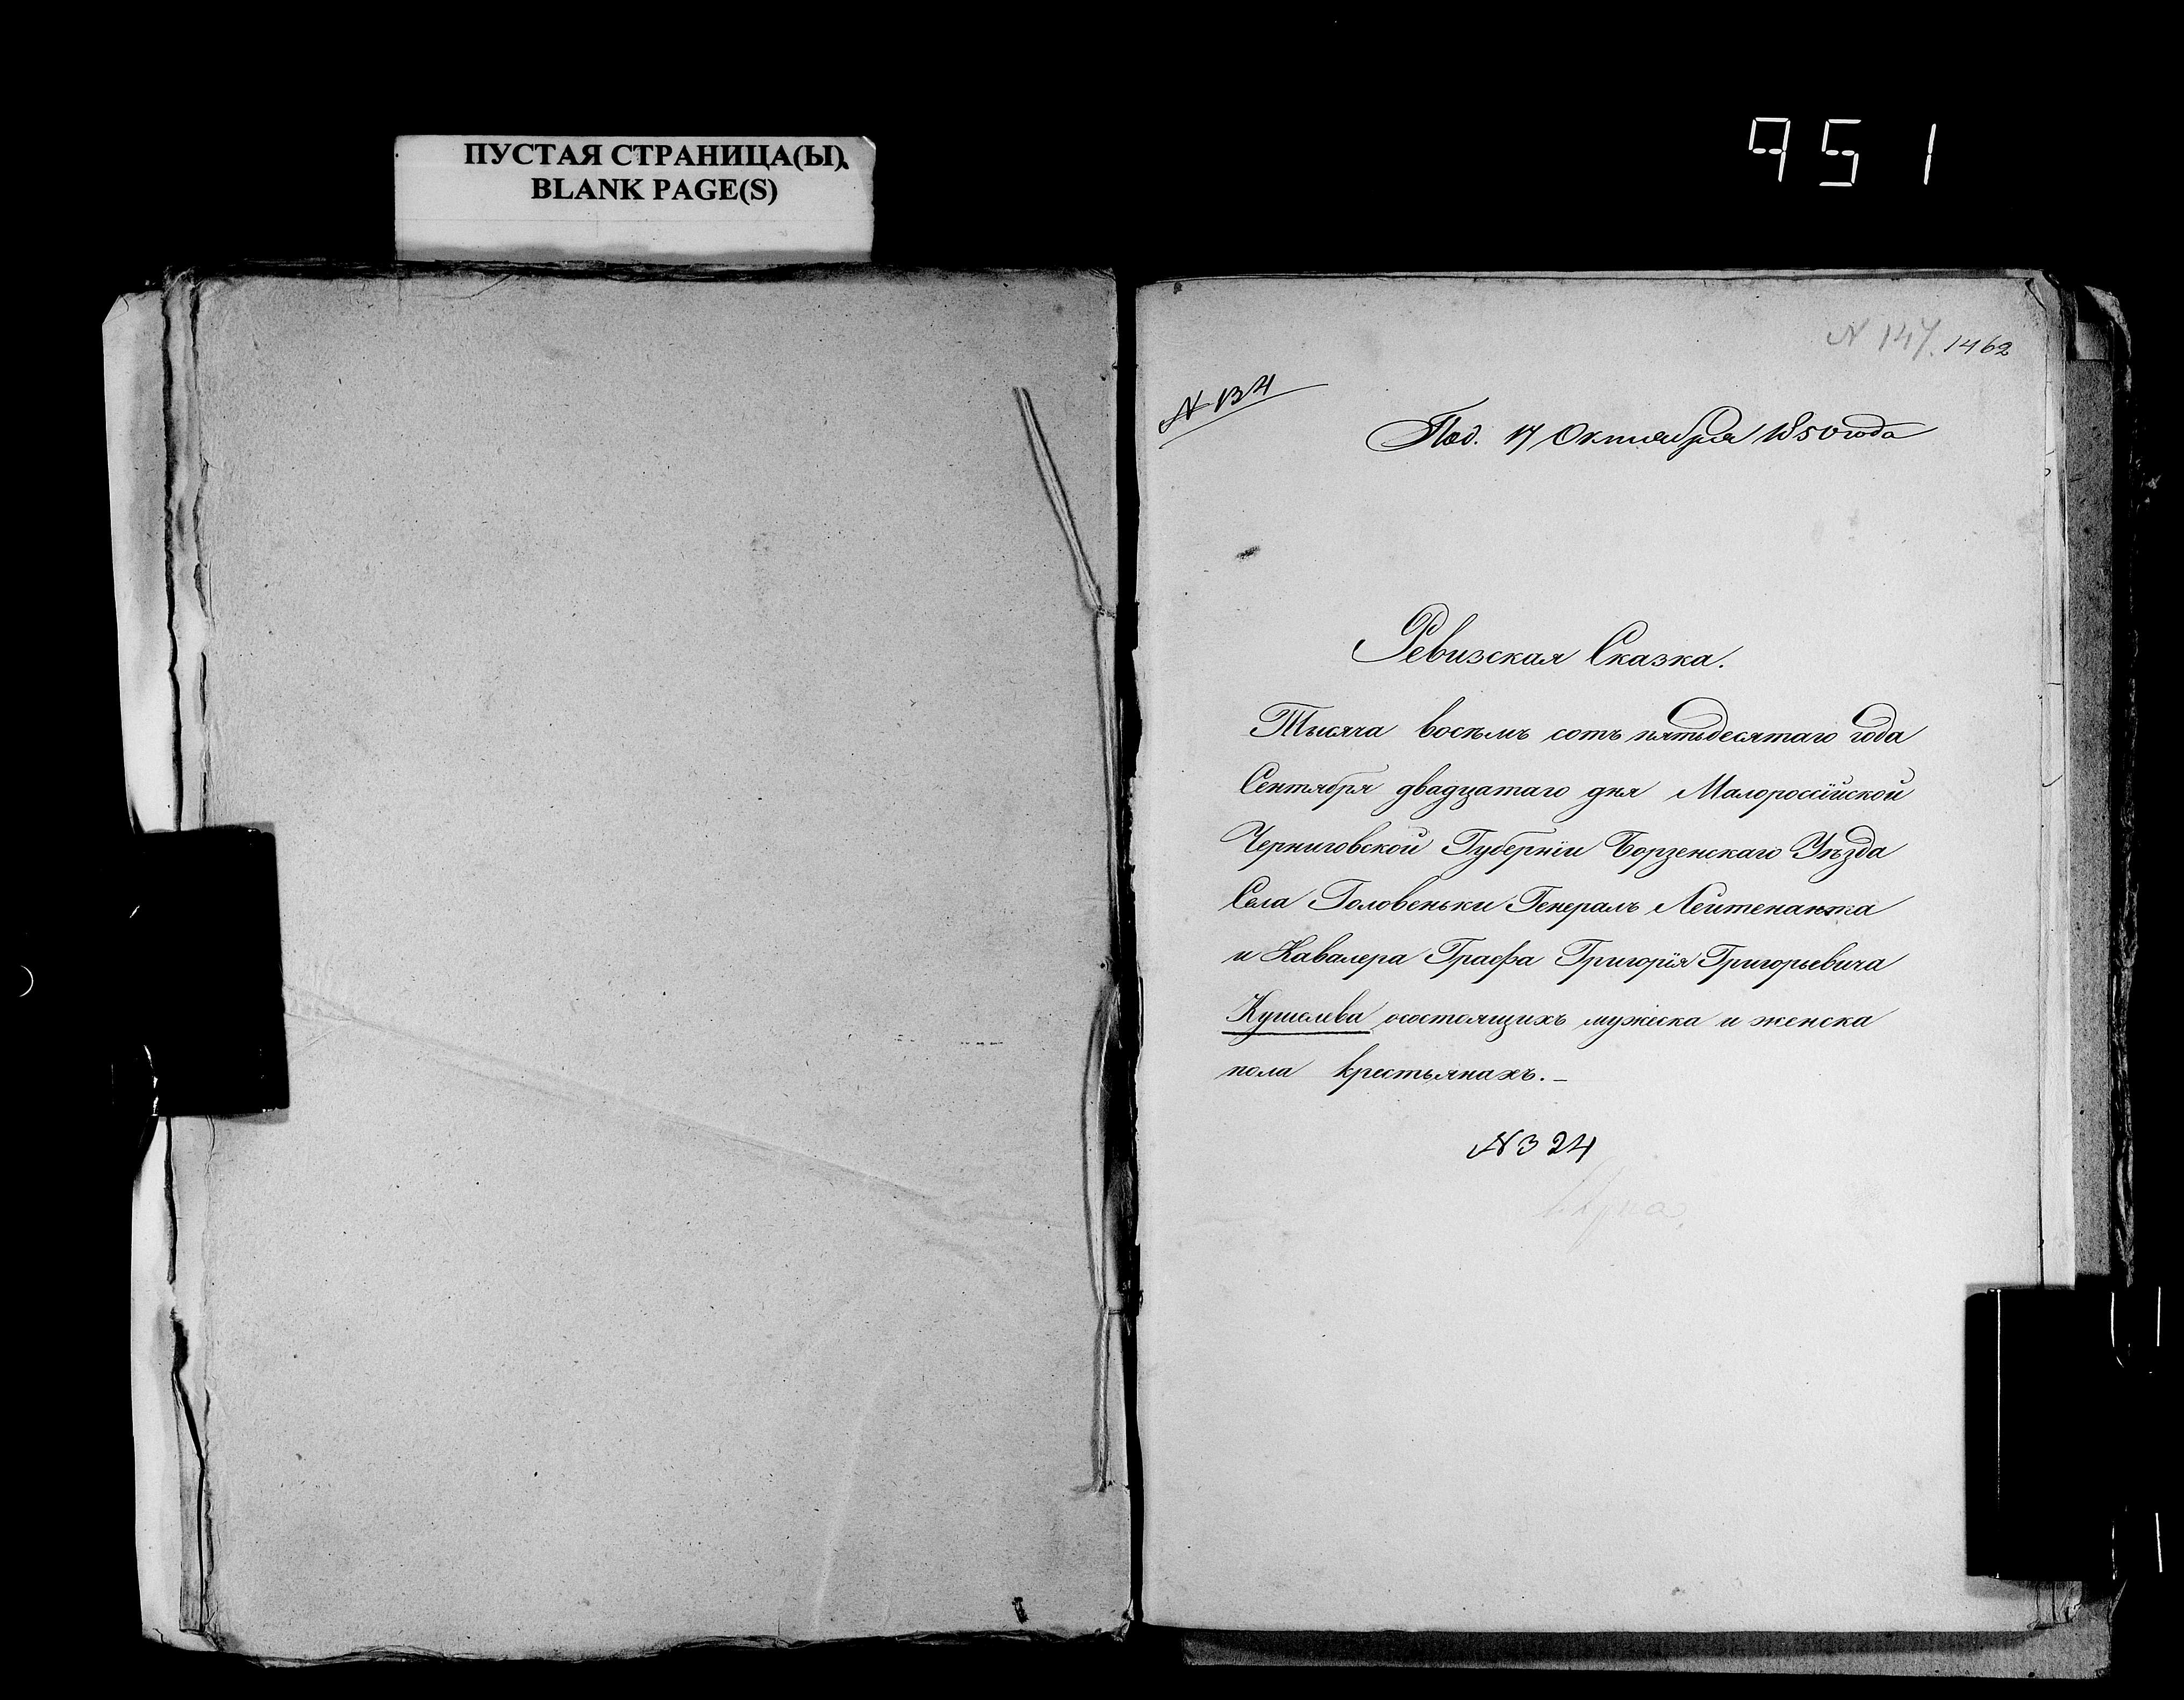 ПУСТАЯ СТРАНИЦА(Ы)
BLANK PAGE(S)
951
N 147. 1462
N 134
Под. 17 Октября 1850 года
Ревизская Сказка.
Тысяча восемь сотъ пятьдесятаго года
Сентября двадцатаго дня Малороссійской
Черниговской Губерніи Борзенскаго Уѣзда
Села Головеньки Генералъ Лейтенанта
и Кавалера Графа Григорія Григорьевича
Кушелева осостоящихъ мужеска и женска
пола крестьянахъ.-
N 324